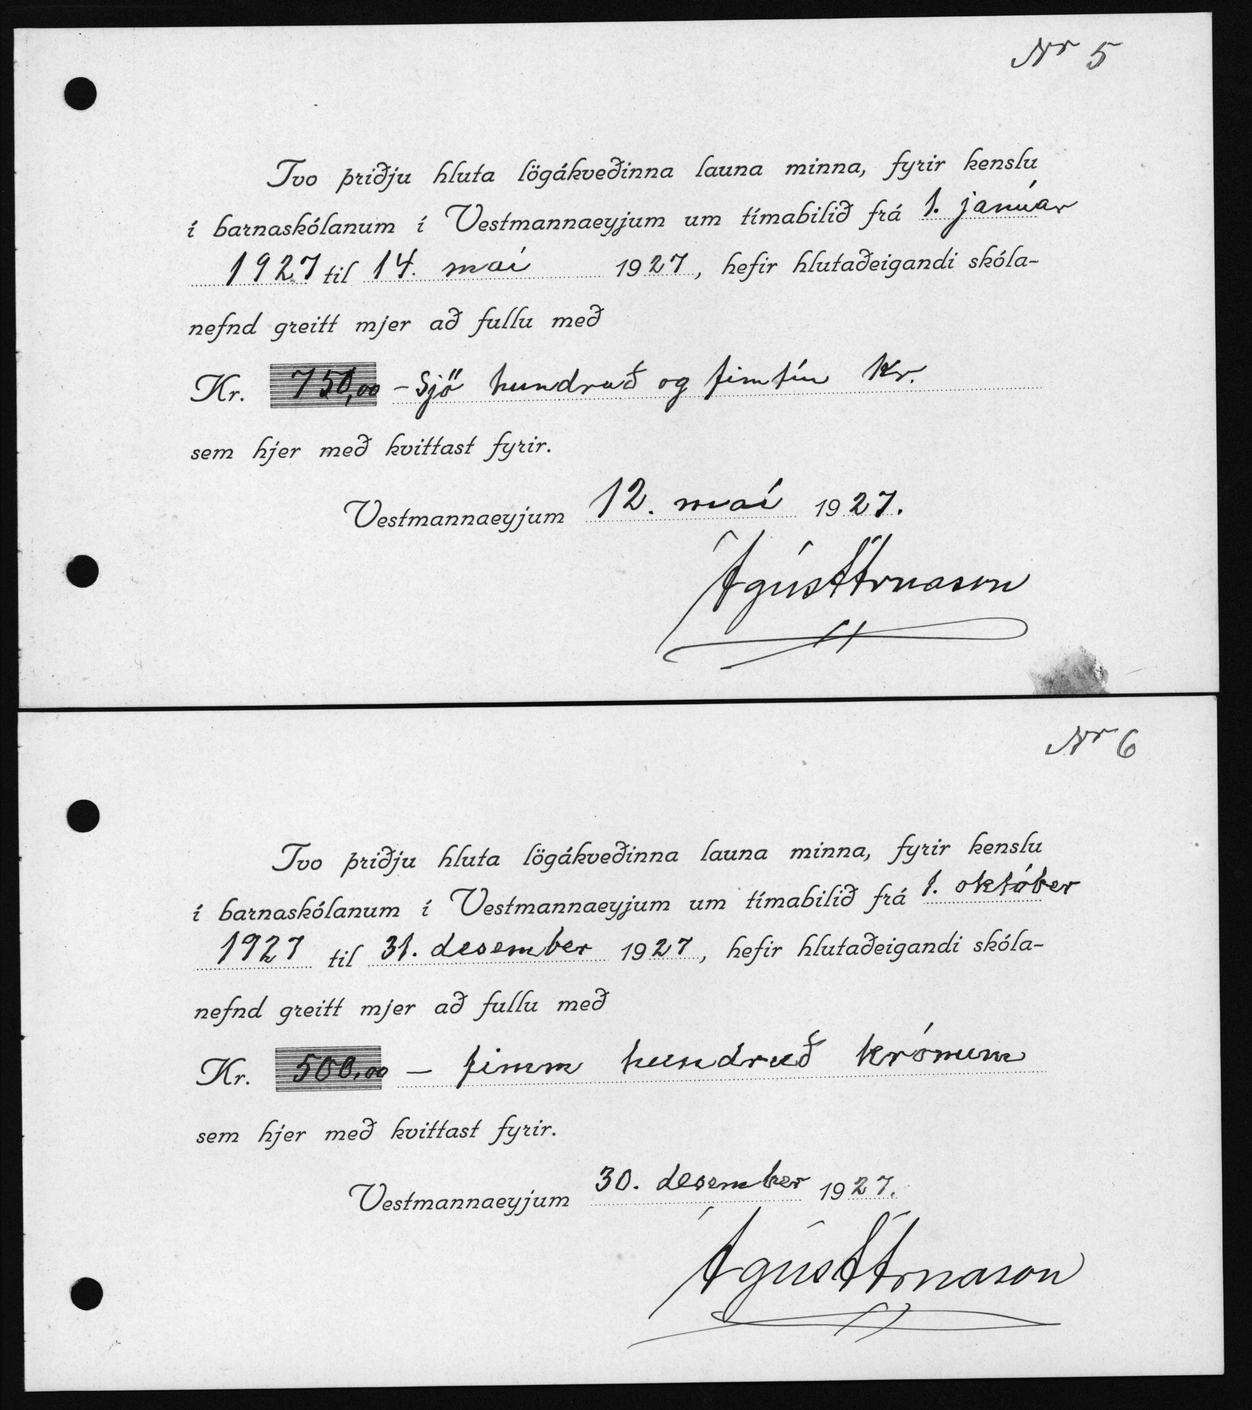 Nr 5
Tvo þriðju hluta lögákveðinna launa minna, fyrir kenslu
í barnaskólanum í Vestmannaeyjum um tímabilið frá 1. janúar
1927 til 14. maí 1927, hefir hlutaðeigandi skóla-
nefnd greitt mjer að fullu með
Kr. 750,00 - Sjö hundruð og fimtíu kr.
sem hjer með kvittast fyrir.
Vestmannaeyjum 12. maí 1927.
Ágúst Árnason
Nr 6
Tvo þriðju hluta lögákveðinna launa minna, fyrir kenslu
í barnaskólanum í Vestmannaeyjum um tímabilið frá 1. október
1927 til 31. desember 1927, hefir hlutaðeigandi skóla-
nefnd greitt mjer að fullu með
Kr. 500,00 — fimm hundruð krónum
sem hjer með kvittast fyrir.
Vestmannaeyjum 30. desember 1927.
Ágúst Árnason